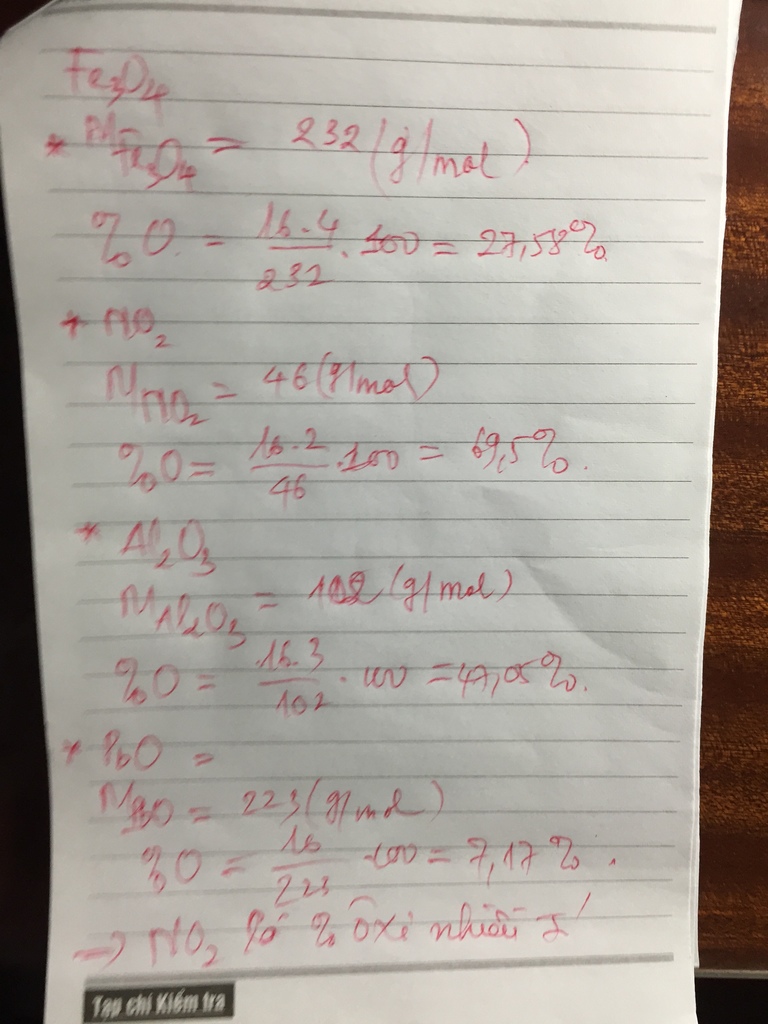 Fe3O4
* M Fe3O4 = 232 (g/mol)
%O = 16.4/232 . 100 = 27,58%
* NO2
M NO2 = 46 (g/mol)
%O = 16.2/46 . 100 = 69,5%.
* Al2O3
M Al2O3 = 102 (g/mol)
%O = 16.3/102 . 100 = 47,05%.
* PbO =
M PbO = 223 (g/mol)
%O = 16/223 . 100 = 7,17%.
→ NO2 có % ôxi nhiều I'
Tạp chí Kiểm tra